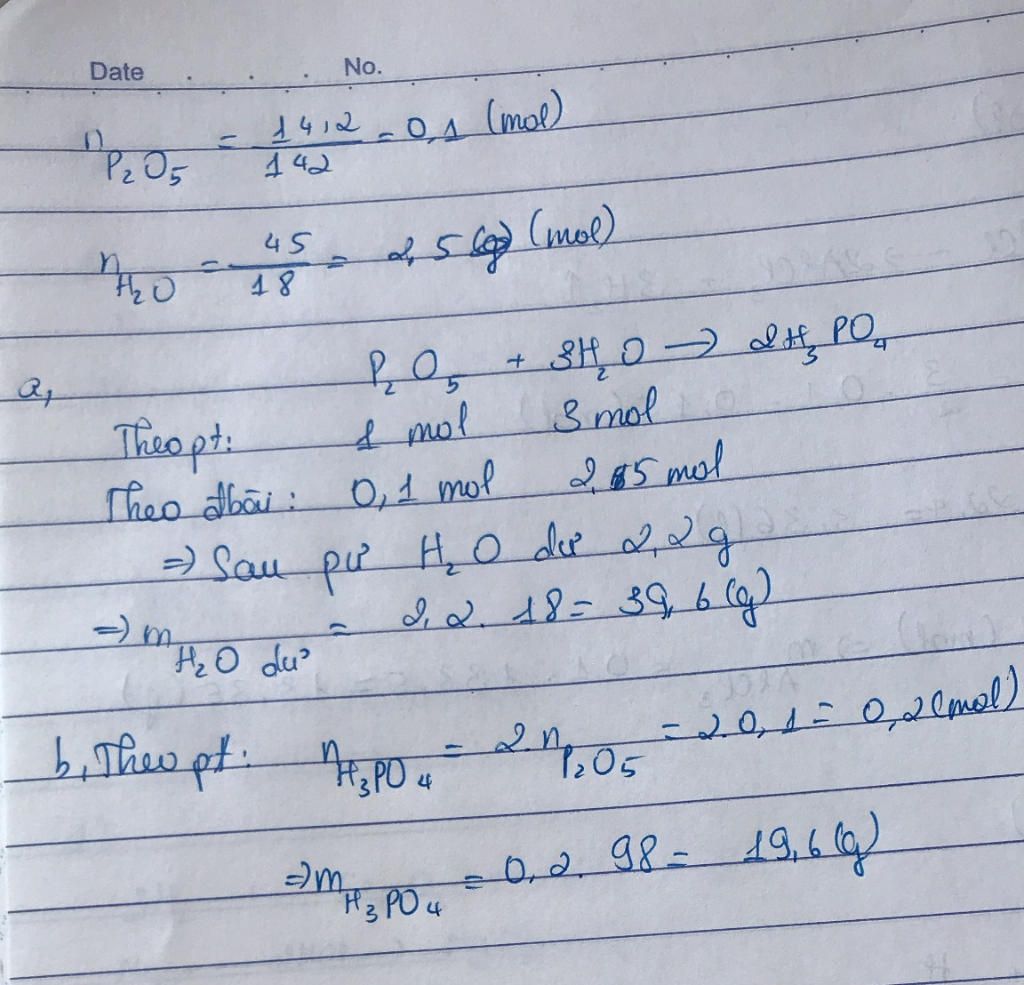 Date . . . No.
n P₂O₅ = 14,2/142 = 0,1 (mol)
n H₂O = 45/18 = 2,5 (g) (mol)
a, P₂O₅ + 3H₂O → 2H₃PO₄
Theo pt: 1 mol 3 mol
Theo đbài: 0,1 mol 2,5 mol
⇒ Sau pư H₂O dư 2,2 g
⇒ m H₂O dư = 2,2. 18 = 39,6 (g)
b, Theo pt: n H₃PO₄ = 2. n P₂O₅ = 2.0,1 = 0,2 (mol)
⇒ m H₃PO₄ = 0,2. 98 = 19,6 (g)